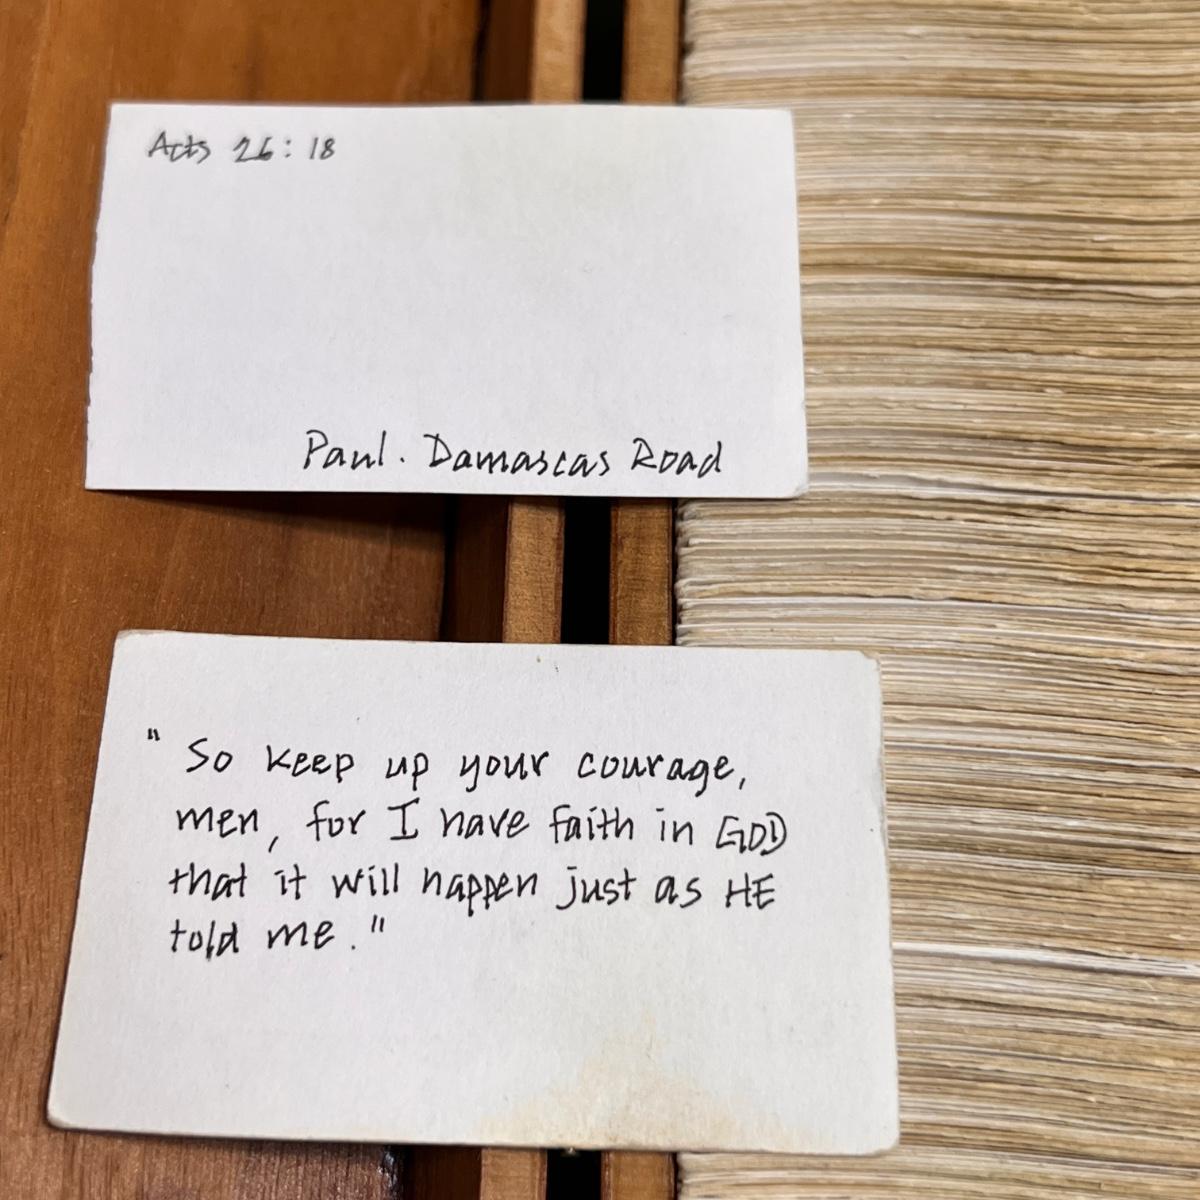 Acts 26:18
Paul. Damascas Road
"So keep up your courage,
men, for I have faith in GOD
that it will happen just as HE
told me."